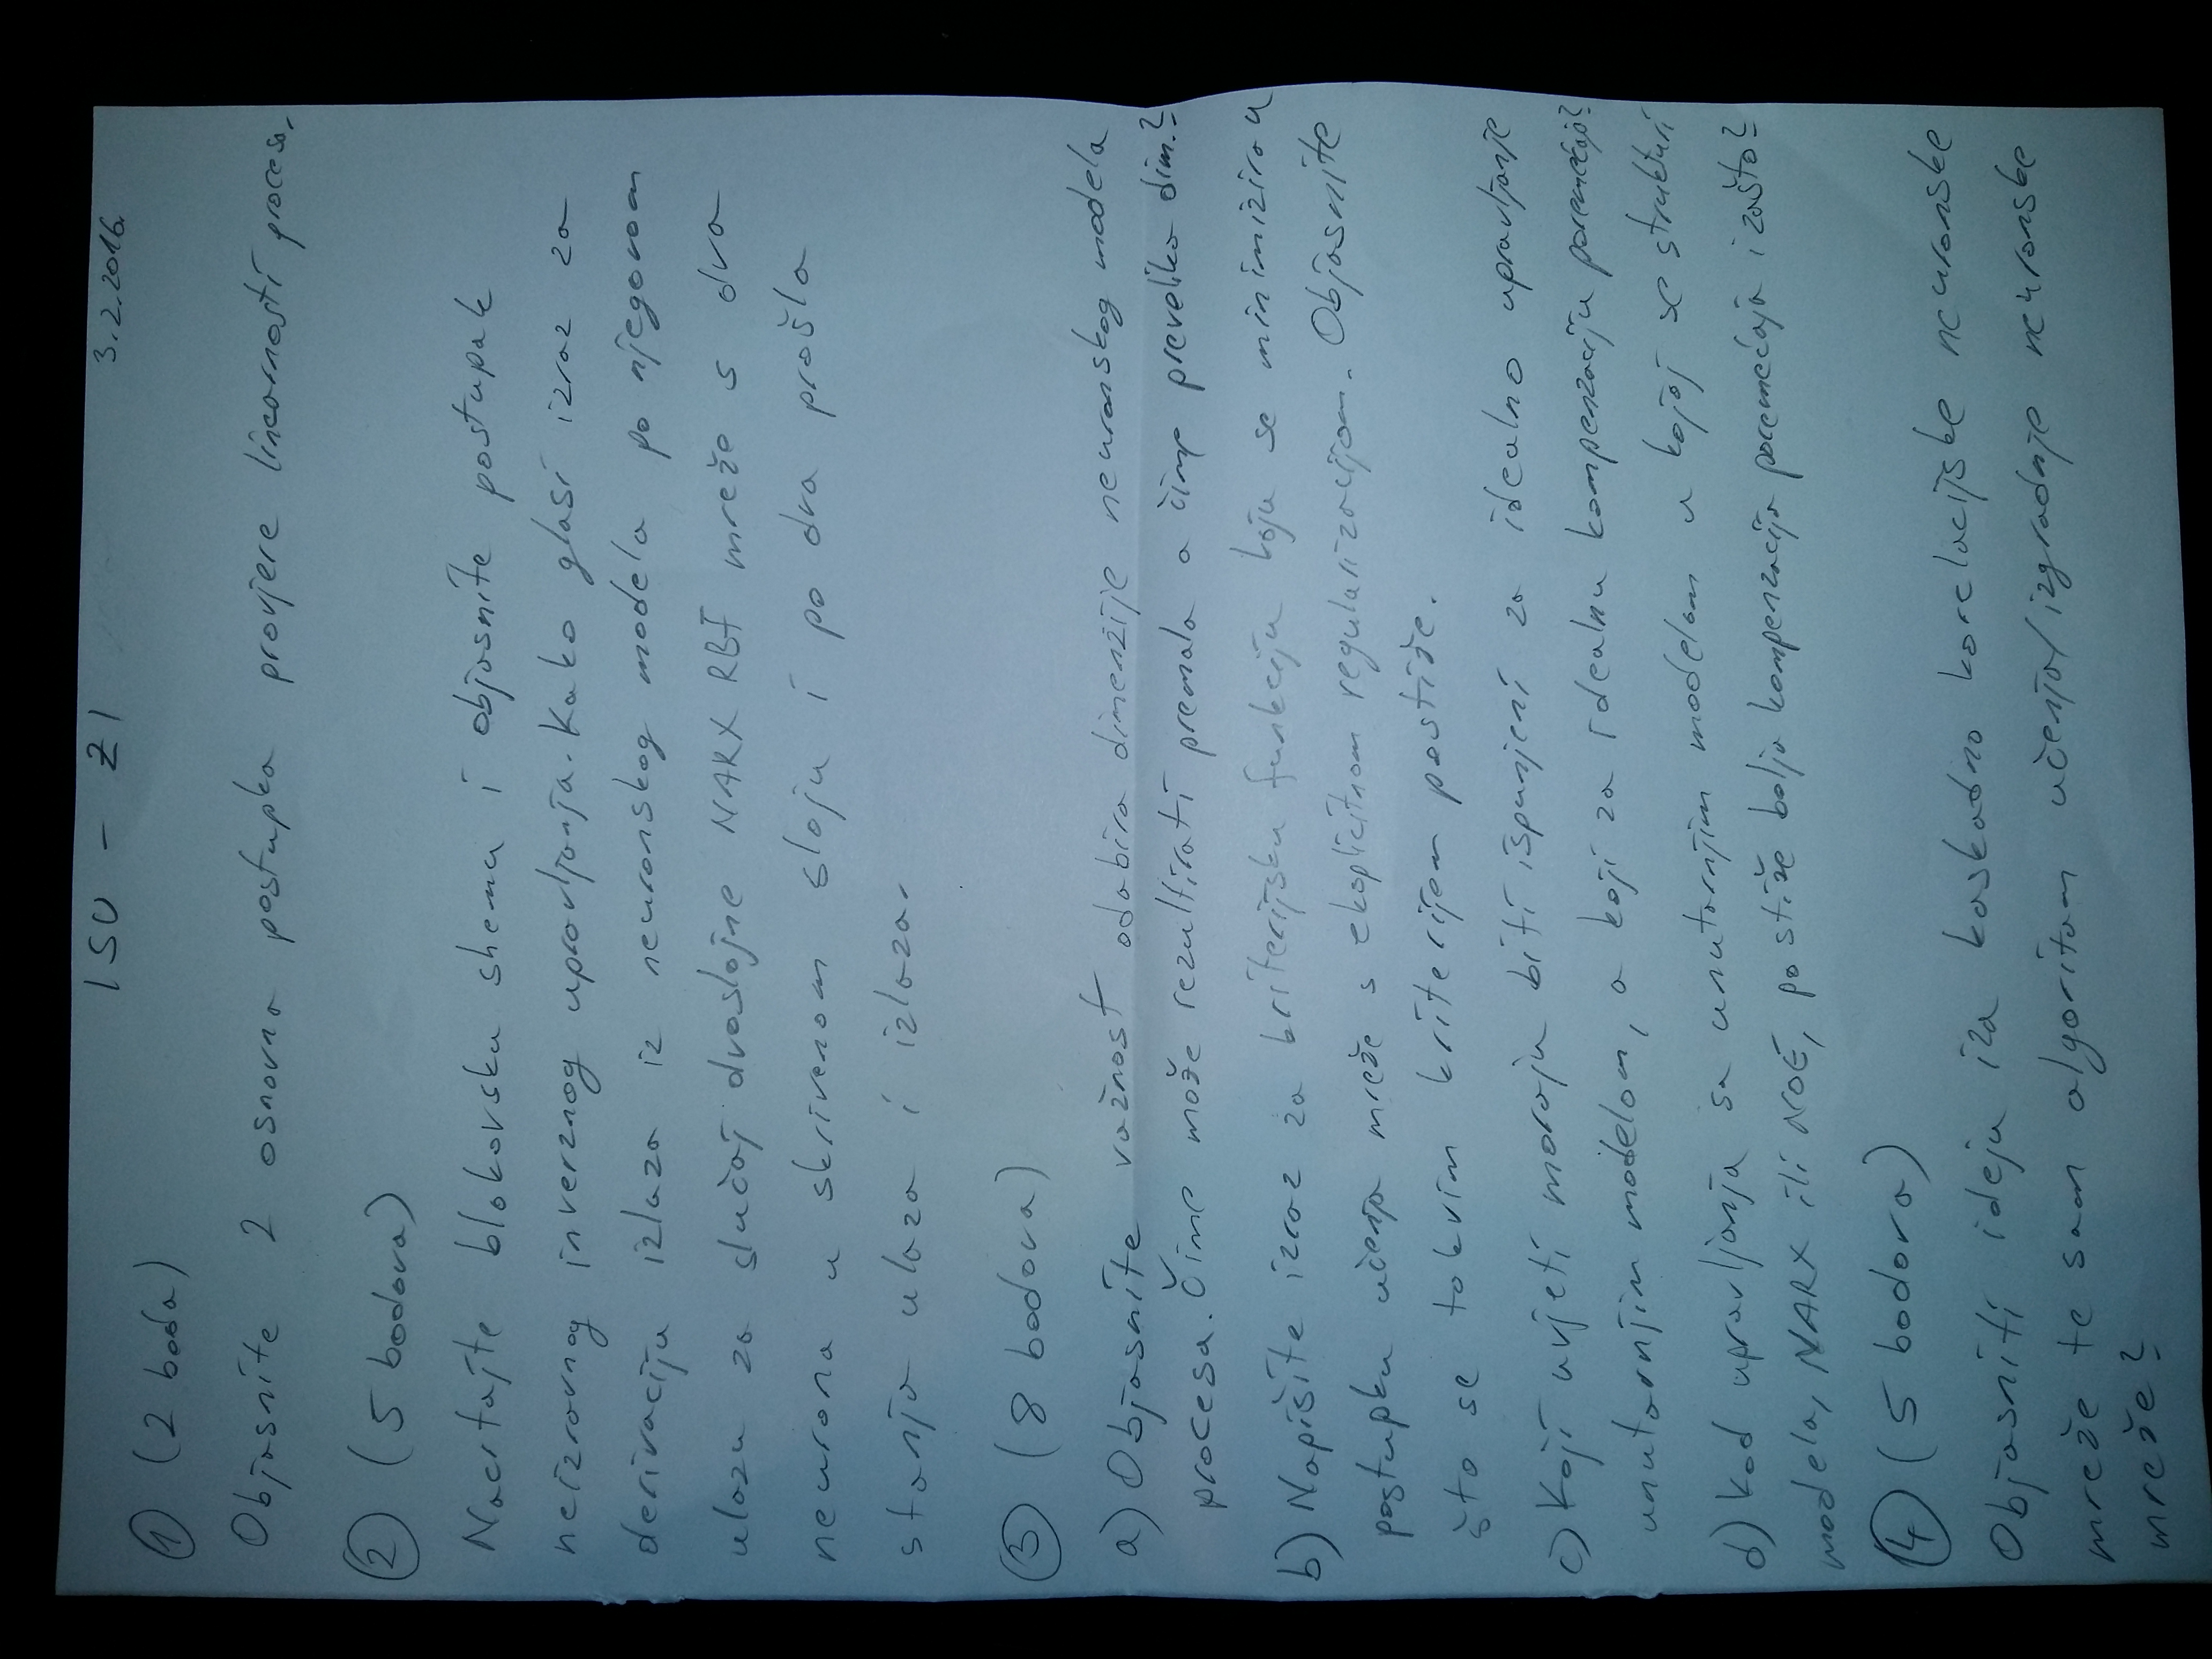 ISU - ZI 3.2.2016.
① (2 boda)
Objasnite 2 osnovna postupka provjere linearnosti procesa.
② (5 bodova)
Nacrtajte blokovsku shemu i objasnite postupak
neizravnog inverznog upravljanja. Kako glasi izraz za
derivaciju izlaza iz neuronskog modela po njegovom
ulazu za slučaj dvoslojne NARX RBF mreže s dva
neurona u skrivenom sloju i po dva prošla
stanja ulaza i izlaza.
③ (8 bodova)
a) Objasnite važnost odabira dimenzije neuronskog modela
procesa. Čime može rezultirati premala a čime prevelika dim.?
b) Napišite izraz za kriterijsku funkciju koju se minimizira u
postupku učenja mreže s eksplicitnom regularizacijom. Objasnite
što se takvim kriterijem postiže.
c) Koji uvjeti moraju biti ispunjeni za idealno upravljanje
unutarnjim modelom, a koji za idealnu kompenzaciju poremećaja?
d) Kod upravljanja sa unutarnjim modelom u kojoj se strukturi
modela, NARX ili NOE, postiže bolja kompenzacija poremećaja i zašto?
④ (5 bodova)
Objasniti ideju iza kaskadno korelacijske neuronske
mreže te sam algoritam učenja/izgradnje neuronske
mreže?